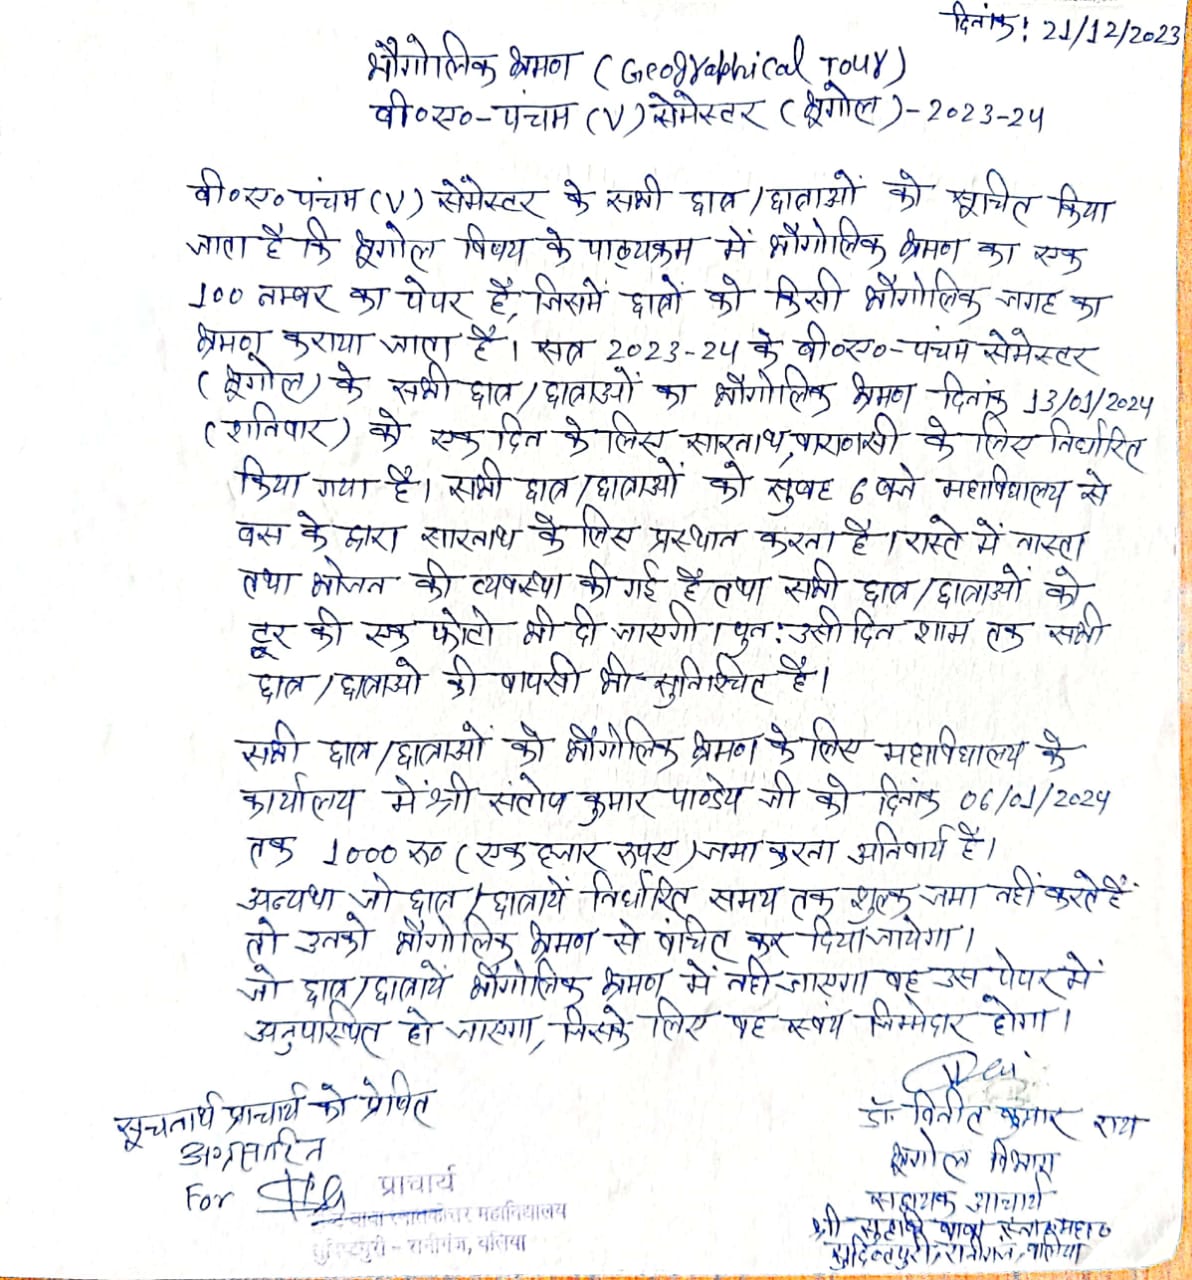 दिनांक: 21/12/2023
भौगोलिक भ्रमण (Geographical Tour)
बी०ए०-पंचम (V) सेमेस्टर (भूगोल)-2023-24
बी०ए० पंचम (V) सेमेस्टर के सभी छात्र/छात्राओं को सूचित किया
जाता है कि भूगोल विषय के पाठ्यक्रम में भौगोलिक भ्रमण का एक
100 नम्बर का पेपर है, जिसमें छात्रों को किसी भौगोलिक जगह का
भ्रमण कराया जाता है। सत्र 2023-24 के बी०ए०-पंचम सेमेस्टर
(भूगोल) के सभी छात्र/छात्राओं का भौगोलिक भ्रमण दिनांक 13/01/2024
(शनिवार) को एक दिन के लिए सारनाथ, वाराणसी के लिए निर्धारित
किया गया है। सभी छात्र/छात्राओं को सुबह 6 बजे महाविद्यालय से
बस के द्वारा सारनाथ के लिए प्रस्थान करना है। रास्ते में नास्ता
तथा भोजन की व्यवस्था की गई है तथा सभी छात्र/छात्राओं को
टूर की एक फोटो भी दी जाएगी। पुन: उसी दिन शाम तक सभी
छात्र/छात्राओ की वापसी भी सुनिश्चित है।
सभी छात्र/छात्राओं को भौगोलिक भ्रमण के लिए महाविद्यालय के
कार्यालय में श्री संतोष कुमार पाण्डेय जी को दिनांक 06/01/2024
तक 1000 रू० (एक हजार रुपए) जमा करना अनिवार्य है।
अन्यथा जो छात्र/छात्रायें निर्धारित समय तक शुल्क जमा नहीं करते हैं
तो उनको भौगोलिक भ्रमण से वंचित कर दिया जायेगा।
जो छात्र/छात्रायें भौगोलिक भ्रमण में नही जाएगा वह उस पेपर में
अनुपस्थित हो जाएगा, जिसके लिए वह स्वयं जिम्मेदार होगा।
सूचनार्थ प्राचार्य को प्रेषित
अग्रसारित
For
प्राचार्य
बाबा स्नातकोत्तर महाविद्यालय
रानीगंज, बलिया
डॉ० विनीत कुमार राय
भूगोल विभाग
सहायक आचार्य
श्री बाबा
रानीगंज, बलिया